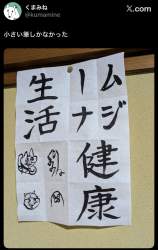 くまみね
@kumamine
X.com
小さい筆しかなかった
ムジーナ健康
生活